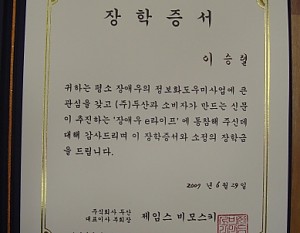 장학증서
이승철
귀하는 평소 장애우의 정보화도우미사업에 큰
관심을 갖고 (주)두산과 소비자가 만드는 신문
이 추진하는 '장애우 e라이프'에 동참해 주신데
대해 감사드리며 이 장학증서와 소정의 장학금
을 드립니다.
2007 년 6 월 29 일
주식회사 두산
대표이사 부회장 제임스 비모스키